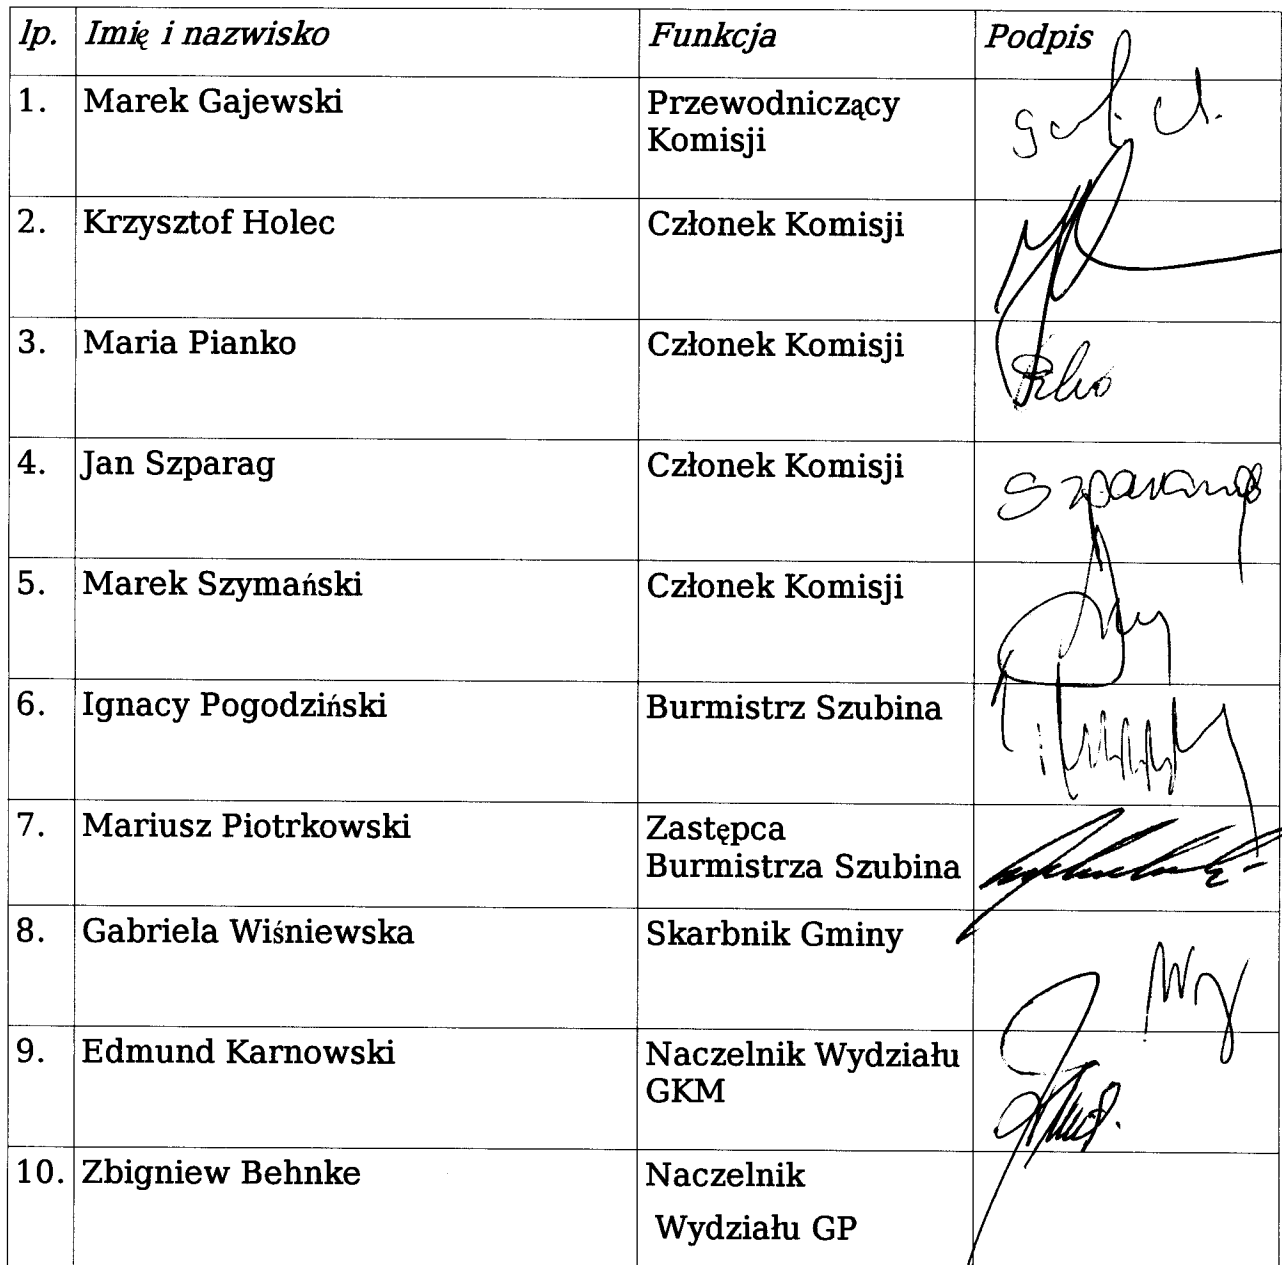 lp. Imię i nazwisko Funkcja Podpis
1. Marek Gajewski Przewodniczący
Komisji
2. Krzysztof Holec Członek Komisji
3. Maria Pianko Członek Komisji
4. Jan Szparag Członek Komisji
Szparag
5. Marek Szymański Członek Komisji
6. Ignacy Pogodziński Burmistrz Szubina
7. Mariusz Piotrkowski Zastępca
Burmistrza Szubina
8. Gabriela Wiśniewska Skarbnik Gminy
9. Edmund Karnowski Naczelnik Wydziału
GKM
10. Zbigniew Behnke Naczelnik
Wydziału GP